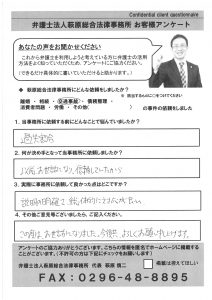 Confidential client questionnaire
弁護士法人萩原総合法律事務所 お客様アンケート
あなたの声をお聞かせください
これから弁護士を利用しようと考えている方に弁護士の活用
方法をよく知っていただくため、アンケートにご協力ください。
(できるだけ具体的に書いていただけると助かります。)
◆ 萩原総合法律事務所にどんな依頼をしましたか?
離婚 ・ 相続 ・ 交通事故 ・ 債務整理 ・
消費者問題 ・ 労働 ・ その他( ) の事件を依頼しました
1. 当事務所に依頼する前にどんなことで悩んでいましたか?
過失割合
2. 何が決め手となって当事務所に依頼しましたか?
以前お世話になり、信頼していたから
3. 実際に当事務所に依頼して良かった点はどこですか?
説明が明確で
4. その他ご意見等ございましたら、ご記入ください。
この度は、お世話になりました。今後共、よろしくお願い申し上げます。
アンケートのご協力ありがとうございます。こちらの情報を匿名でホームページに掲載する
ことがございます。(不許可の方は下記にチェックをお願いします)
弁護士法人萩原総合法律事務所 代表 萩原 慎二
掲載は控えてほしい
FAX:0296-48-8895